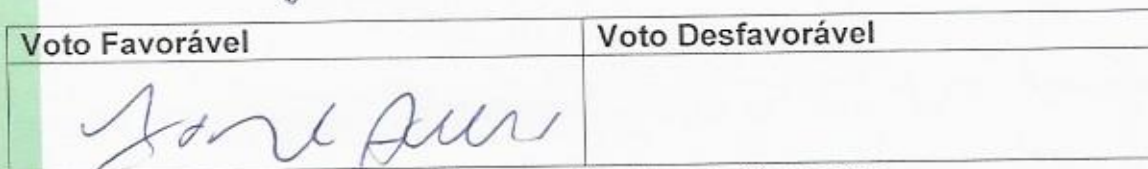 Voto Favorável Voto Desfavorável